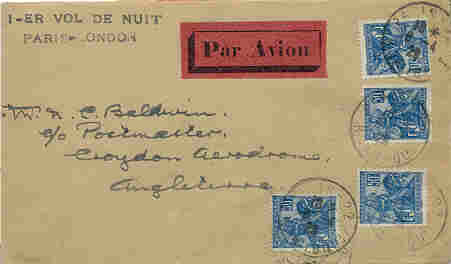 1-ER VOL DE NUIT
PARIS-LONDON
Par Avion
N. C. Baldwin,
c/o Postmaster,
Croydon Aerodrome,
Angleterre.
50c
50c
50c
50c